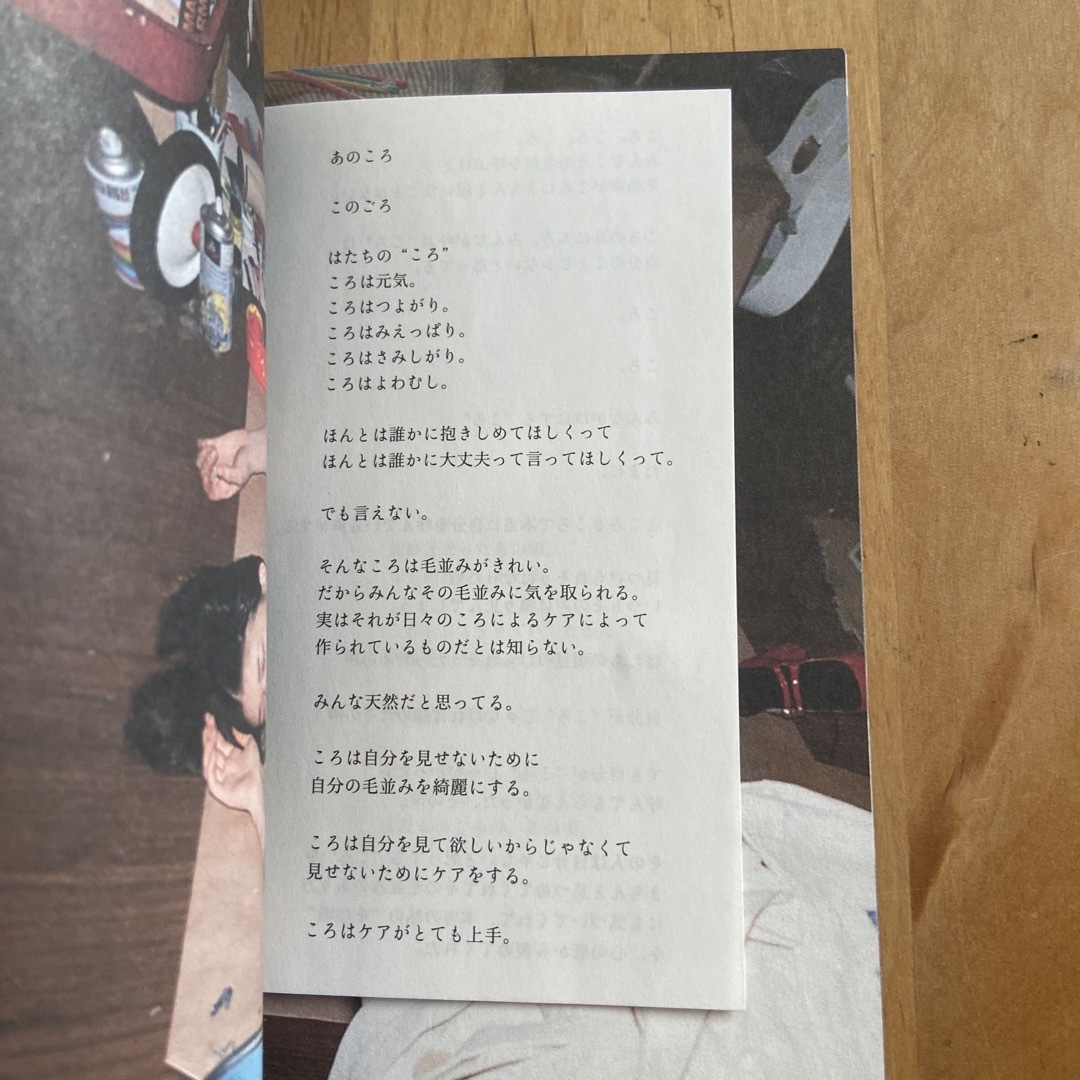 あのころ
このごろ
はたちの “ころ”
ころは元気。
ころはつよがり。
ころはみえっぱり。
ころはさみしがり。
ころはよわむし。
ほんとは誰かに抱きしめてほしくって
ほんとは誰かに大丈夫って言ってほしくって。
でも言えない。
そんなころは毛並みがきれい。
だからみんなその毛並みに気を取られる。
実はそれが日々のころによるケアによって
作られているものだとは知らない。
みんな天然だと思ってる。
ころは自分を見せないために
自分の毛並みを綺麗にする。
ころは自分を見て欲しいからじゃなくて
見せないためにケアをする。
ころはケアがとても上手。